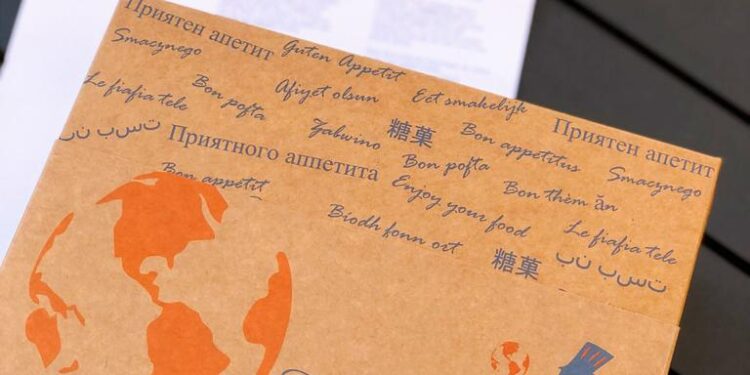 Приятен апетит Guten Appetit
Smacznego Afiyet olsun Eet smakelijk Приятен апетит
Le fiafia tele Bon pofta Zabwino 糖菓 Bon appetitus Smacznego
Приятного аппетита Bon pofta Bon thèm ăn Le fiafia tele
Bon appetit Enjoy your food
Biodh fonn ort 糖菓